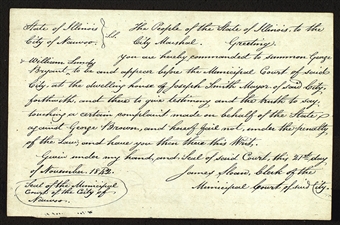 State of Illinois } ss. The People of the State of Illinois, to the
City of Nauvoo. City Marshal. Greeting.
William Lundy you are hereby commanded to summon George
Bryant, to be and appear before the Municipal Court of said
City, at the dwelling house of Joseph Smith Mayor of said City,
forthwith, and there to give testimony and the truth to say,
touching a certain complaint made on behalf of the State,
against George Brown, and hereof fail not, under the penalty
of the law; and have you then there this Writ.
Given under my hand, and Seal of said Court, this 21st day
of November 1843.
James Sloan, Clerk of the
Municipal Court of said City.
Seal of the Municipal
Court of the City of
Nauvoo.